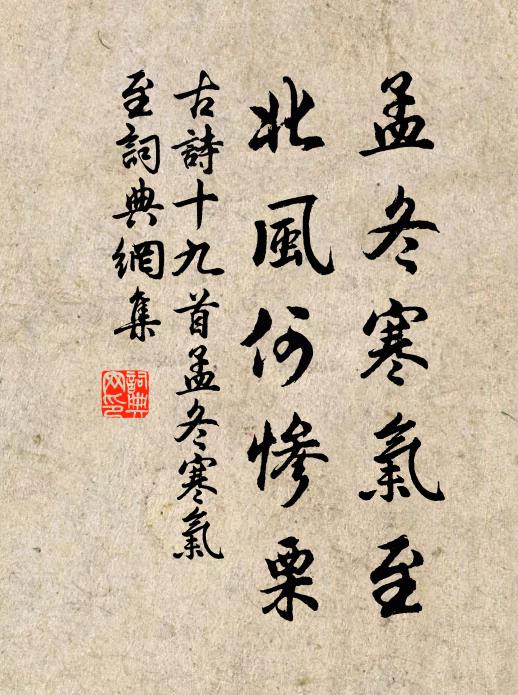 孟冬寒氣至
北風何慘栗
古詩十九首孟冬寒氣
至詞典網集
詞典
网印